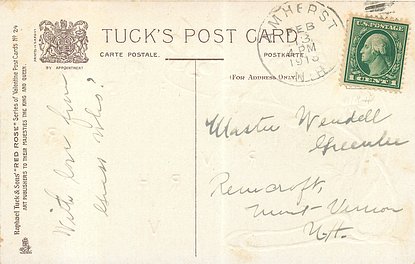 TUCK'S POST CARD
CARTE POSTALE.
POSTKARTE.
(FOR ADDRESS ONLY.)
BY APPOINTMENT
AMHERST
FEB
13
PM
N.H.
1 CENT 1
Raphael Tuck & Sons' "RED ROSE" Series of Valentine Post Cards Nº 24
ART PUBLISHERS TO THEIR MAJESTIES THE KING AND QUEEN.
With love from
Guess who?
Master Wendell
Greenlee
Remcroft,
Mont Vernon
N.H.